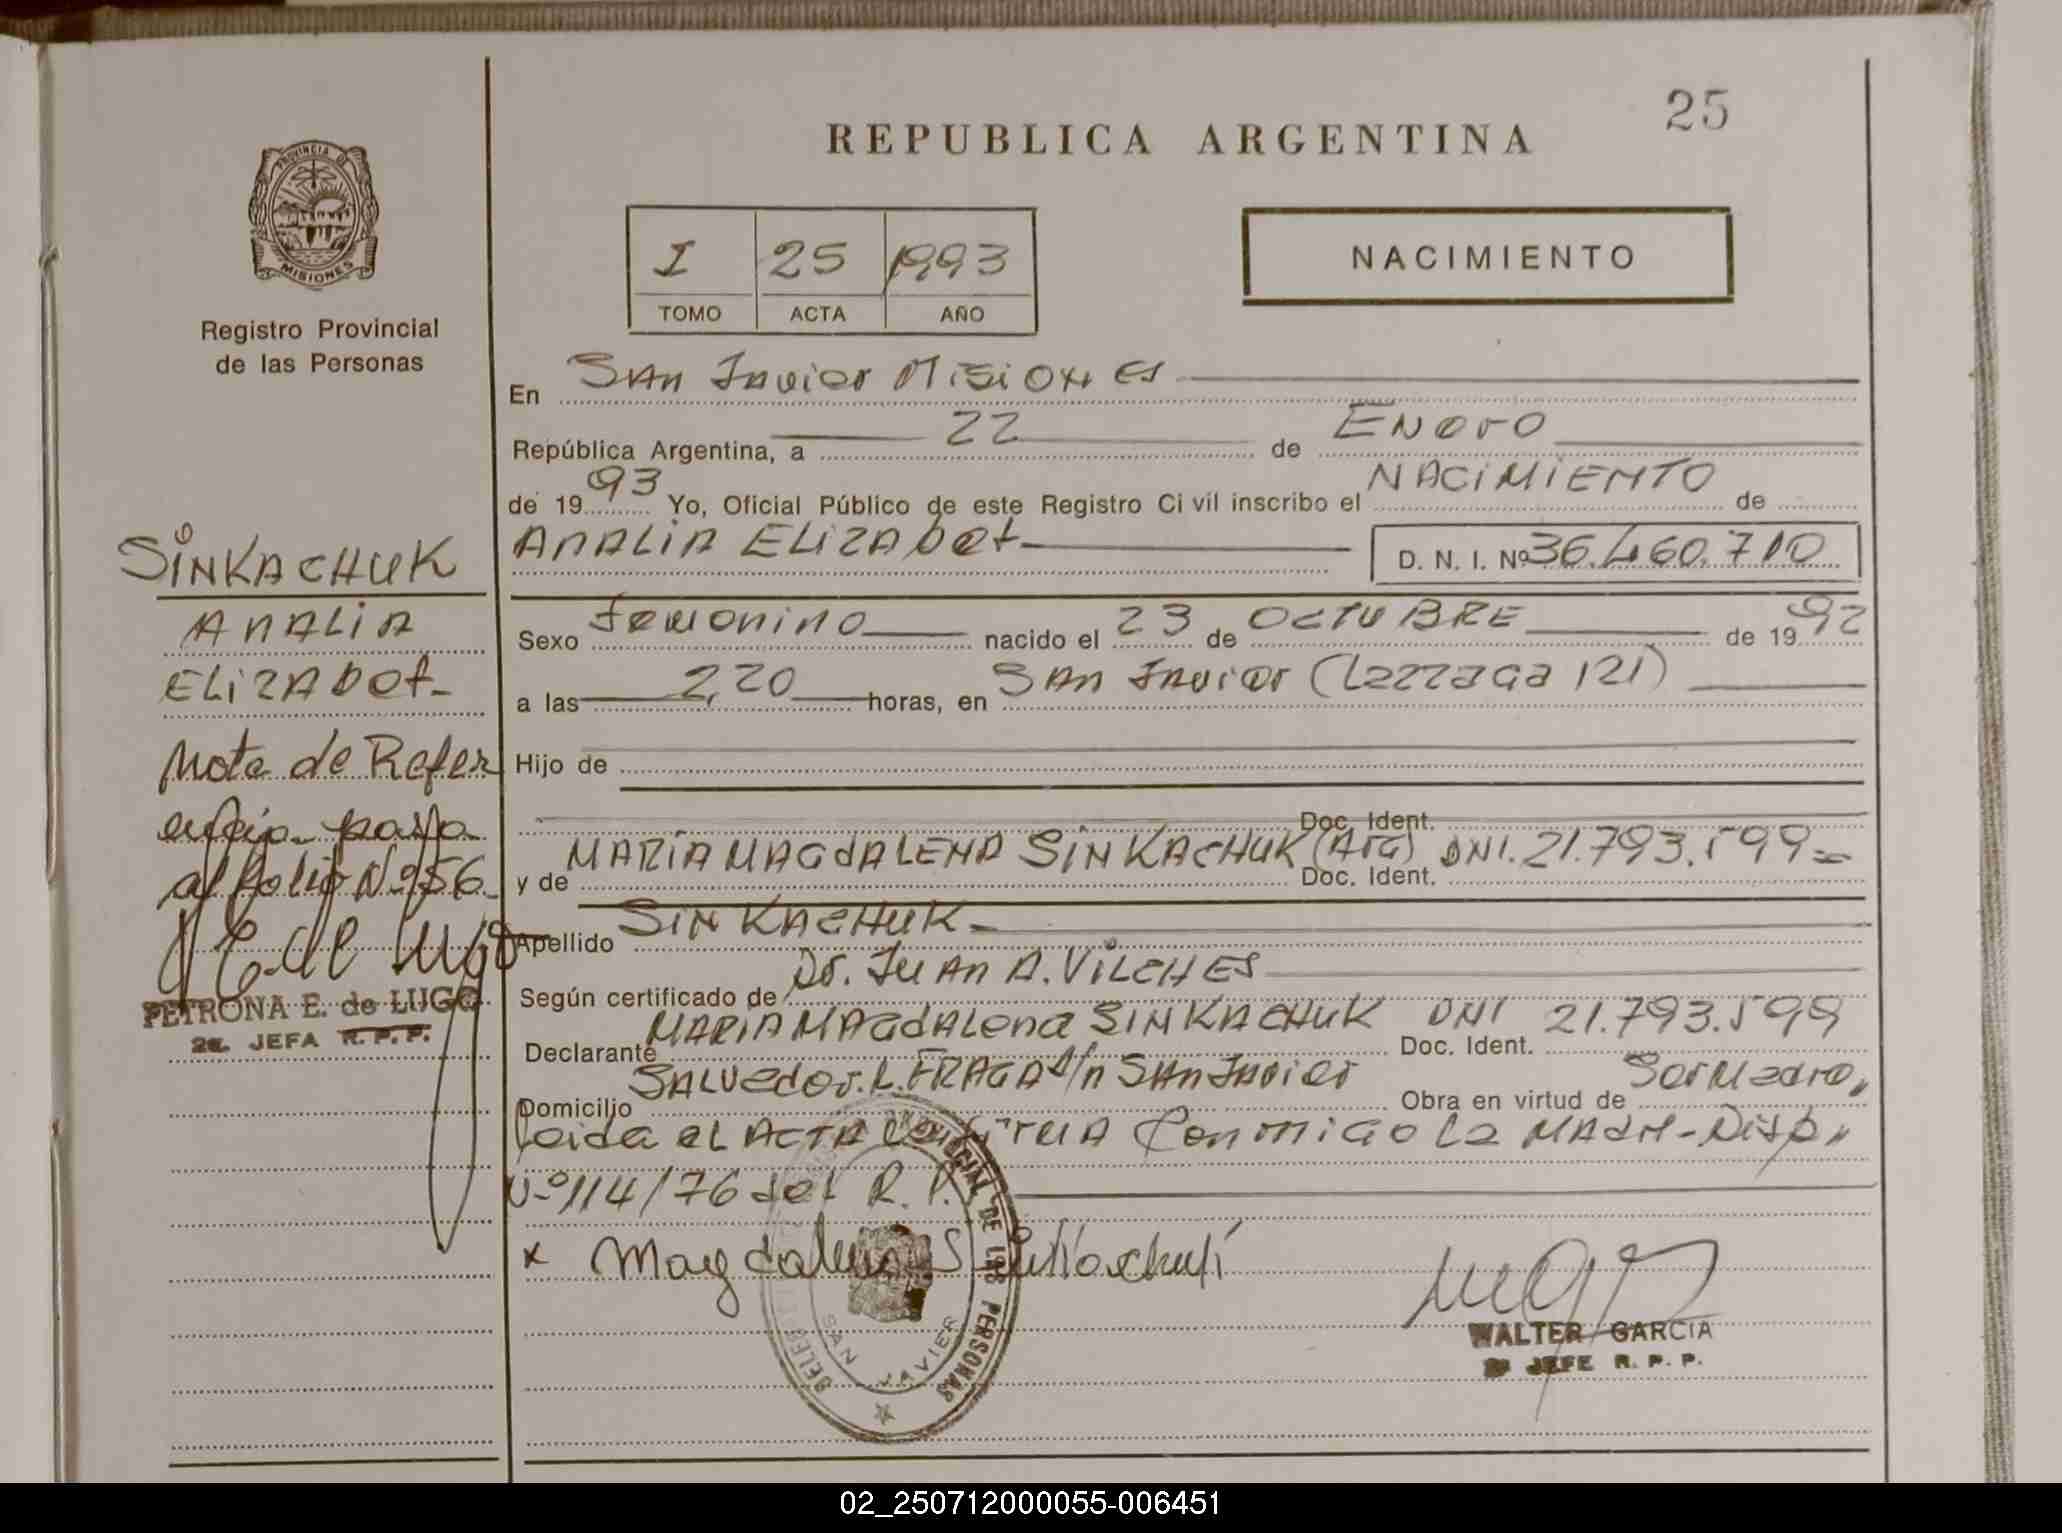 25
REPUBLICA ARGENTINA
PROVINCIA DE
MISIONES
Registro Provincial
de las Personas
I 25 1993
TOMO ACTA AÑO
NACIMIENTO
En San Javier Misiones
República Argentina, a 22 de Enero
de 1993 Yo, Oficial Público de este Registro Civil inscribo el NACIMIENTO de
ANALIA ELIZABET D. N. I. Nº 36.460.710
Sexo femenino nacido el 23 de OCTUBRE de 1992
a las 2,20 horas, en San Javier (Lazzaga 121)
Hijo de
Doc. Ident.
y de MARIA MAGDALENA SINKACHUK (ARG) Doc. Ident. DNI. 21.793.599
Apellido SINKACHUK
Según certificado de Dr. JUAN A. VILCHES
Declarante MARIA MAGDALENA SINKACHUK Doc. Ident. DNI 21.793.599
Domicilio SALVADOR L. FRAGA S/n SAN Javier Obra en virtud de Ser Madre,
Leida el ACTA la firma Conmigo la Madre-Disp.
Nº 114/76 del R. P.
x Magdalena Sinkachuk
SINKACHUK
ANALIA
ELIZABET
Nota de Refer
encia pasa
al folio Nº 256
PETRONA E. de LUGO
2a. JEFA R. P. P.
PROVINCIAL DE LAS PERSONAS
SAN JAVIER
WALTER GARCIA
JEFE R. P. P.
02_250712000055-006451